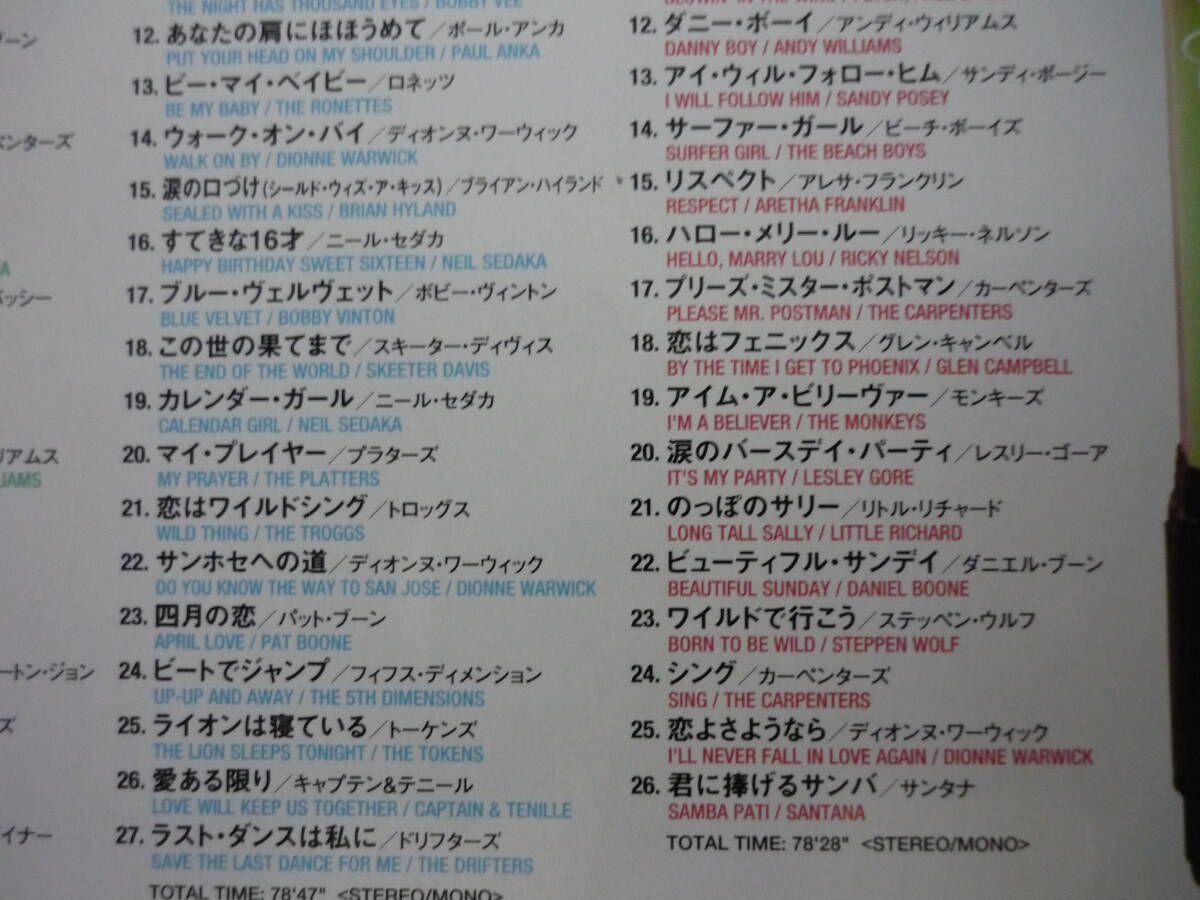 ブーン
ベンターズ
バッシー
リアムス
IAMS
ートン・ジョン
ズ
イナー
THE NIGHT HAS THOUSAND EYES / BOBBY VEE
12. あなたの肩にほほうめて/ポール・アンカ
PUT YOUR HEAD ON MY SHOULDER / PAUL ANKA
13. ビー・マイ・ベイビー/ロネッツ
BE MY BABY / THE RONETTES
14. ウォーク・オン・バイ/ディオンヌ・ワーウィック
WALK ON BY / DIONNE WARWICK
15. 涙の口づけ(シールド・ウィズ・ア・キッス)/ブライアン・ハイランド
SEALED WITH A KISS / BRIAN HYLAND
16. すてきな16才/ニール・セダカ
HAPPY BIRTHDAY SWEET SIXTEEN / NEIL SEDAKA
17. ブルー・ヴェルヴェット/ボビー・ヴィントン
BLUE VELVET / BOBBY VINTON
18. この世の果てまで/スキーター・ディヴィス
THE END OF THE WORLD / SKEETER DAVIS
19. カレンダー・ガール/ニール・セダカ
CALENDAR GIRL / NEIL SEDAKA
20. マイ・プレイヤー/プラターズ
MY PRAYER / THE PLATTERS
21. 恋はワイルドシング/トロッグス
WILD THING / THE TROGGS
22. サンホセへの道/ディオンヌ・ワーウィック
DO YOU KNOW THE WAY TO SAN JOSE / DIONNE WARWICK
23. 四月の恋/パット・ブーン
APRIL LOVE / PAT BOONE
24. ビートでジャンプ/フィフス・ディメンション
UP-UP AND AWAY / THE 5TH DIMENSIONS
25. ライオンは寝ている/トーケンズ
THE LION SLEEPS TONIGHT / THE TOKENS
26. 愛ある限り/キャプテン&テニール
LOVE WILL KEEP US TOGETHER / CAPTAIN & TENILLE
27. ラスト・ダンスは私に/ドリフターズ
SAVE THE LAST DANCE FOR ME / THE DRIFTERS
TOTAL TIME: 78'47" <STEREO/MONO>
12. ダニー・ボーイ/アンディ・ウィリアムス
DANNY BOY / ANDY WILLIAMS
13. アイ・ウィル・フォロー・ヒム/サンディ・ポージー
I WILL FOLLOW HIM / SANDY POSEY
14. サーファー・ガール/ビーチ・ボーイズ
SURFER GIRL / THE BEACH BOYS
15. リスペクト/アレサ・フランクリン
RESPECT / ARETHA FRANKLIN
16. ハロー・メリー・ルー/リッキー・ネルソン
HELLO, MARRY LOU / RICKY NELSON
17. プリーズ・ミスター・ポストマン/カーペンターズ
PLEASE MR. POSTMAN / THE CARPENTERS
18. 恋はフェニックス/グレン・キャンベル
BY THE TIME I GET TO PHOENIX / GLEN CAMPBELL
19. アイム・ア・ビリーヴァー/モンキーズ
I'M A BELIEVER / THE MONKEYS
20. 涙のバースデイ・パーティ/レスリー・ゴーア
IT'S MY PARTY / LESLEY GORE
21. のっぽのサリー/リトル・リチャード
LONG TALL SALLY / LITTLE RICHARD
22. ビューティフル・サンデイ/ダニエル・ブーン
BEAUTIFUL SUNDAY / DANIEL BOONE
23. ワイルドで行こう/ステッペン・ウルフ
BORN TO BE WILD / STEPPEN WOLF
24. シング/カーペンターズ
SING / THE CARPENTERS
25. 恋よさようなら/ディオンヌ・ワーウィック
I'LL NEVER FALL IN LOVE AGAIN / DIONNE WARWICK
26. 君に捧げるサンバ/サンタナ
SAMBA PATI / SANTANA
TOTAL TIME: 78'28" <STEREO/MONO>